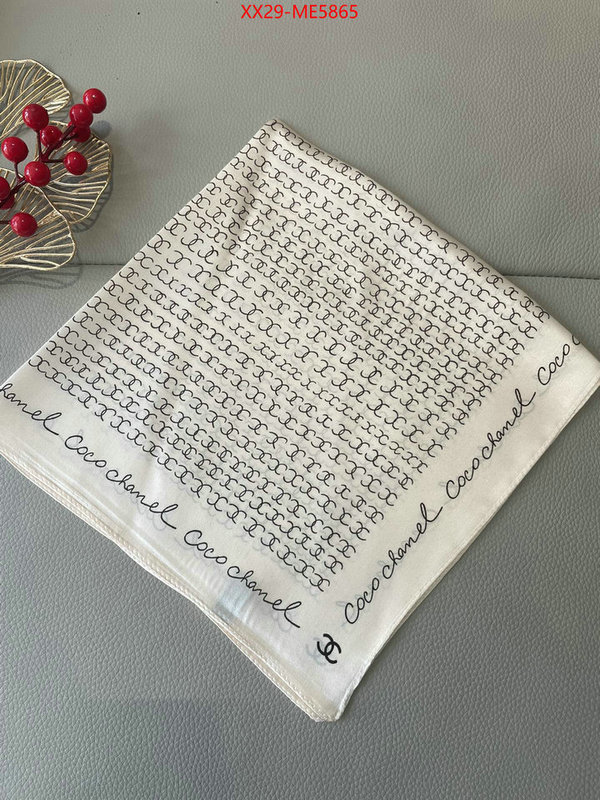 XX29-ME5865
Coco
Coco chanel
hanel
Coco chanel
Coco chanel
Coco chanel